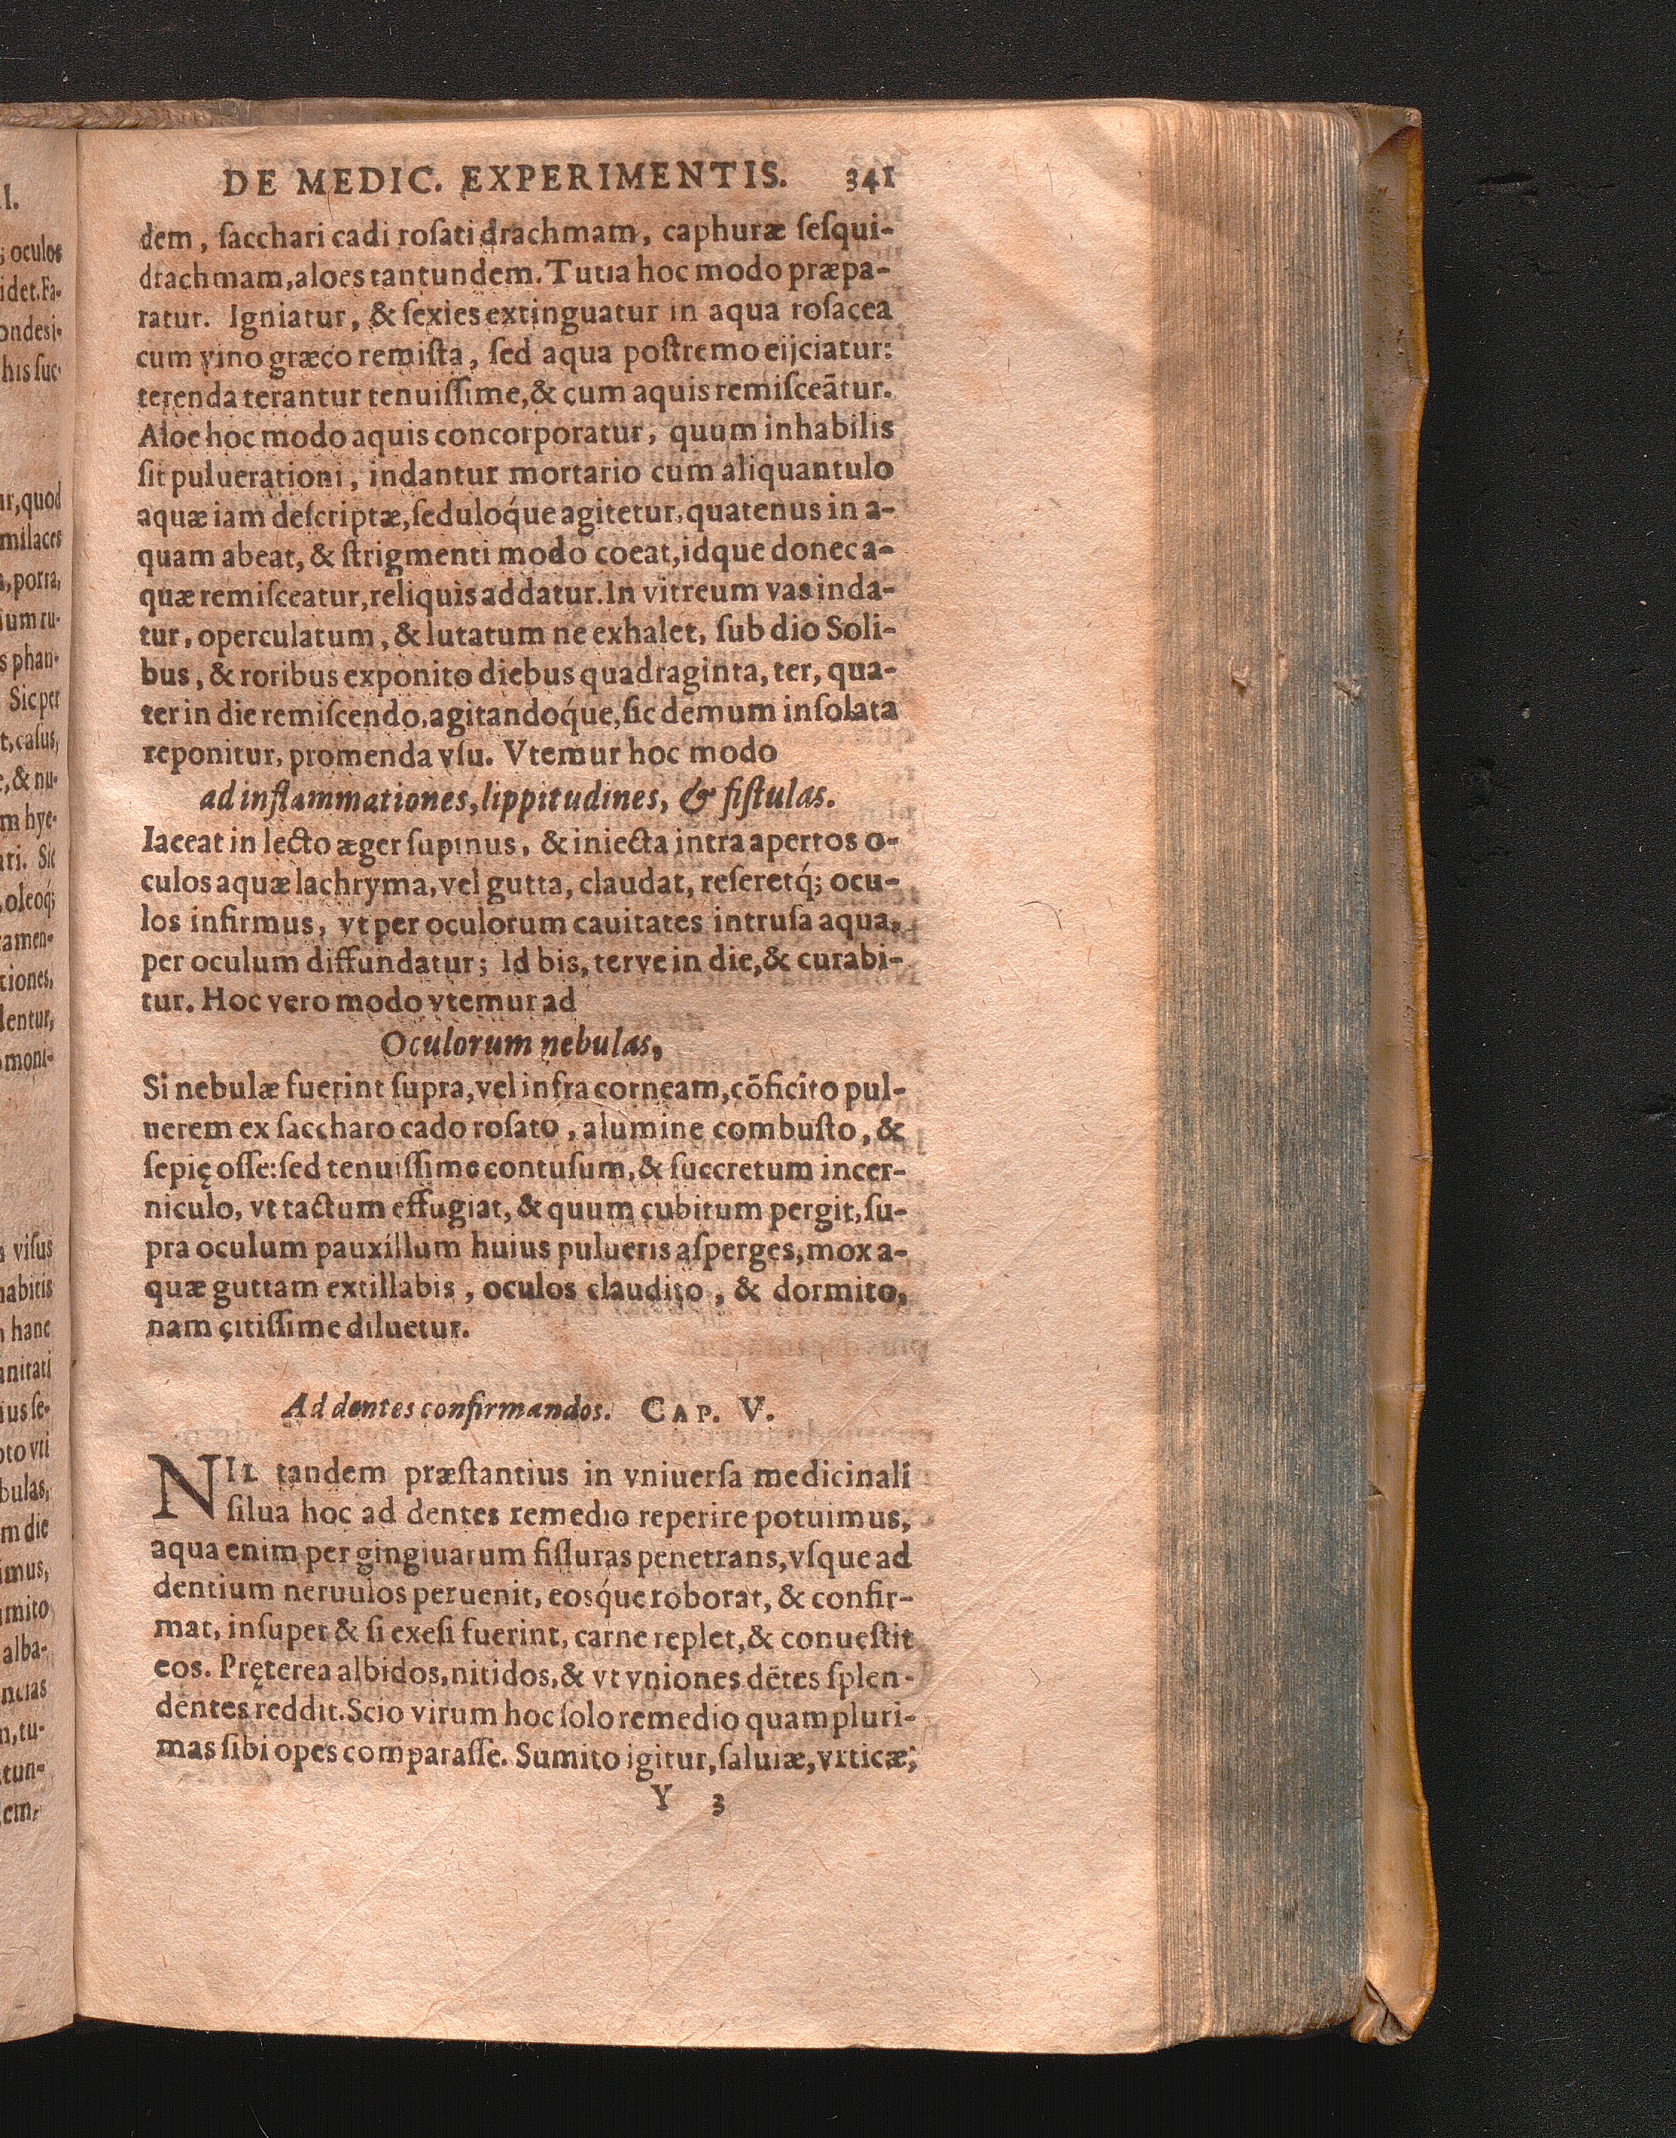 DE MEDIC. EXPERIMENTIS. 341
dem, ſacchari cadi roſati drachmam, caphuræ ſeſqui-
drachmam, aloes tantundem. Tutia hoc modo præpa-
ratur. Igniatur, & ſexies extinguatur in aqua roſacea
cum vino græco remiſta, ſed aqua poſtremo eijciatur:
terenda terantur tenuiſſime, & cum aquis remiſceātur.
Aloe hoc modo aquis concorporatur, quum inhabilis
ſit puluerationi, indantur mortario cum aliquantulo
aquæ iam deſcriptæ, ſeduloq́ue agitetur, quatenus in a-
quam abeat, & ſtrigmenti modo coeat, idque donec a-
quæ remiſceatur, reliquis addatur. In vitreum vas inda-
tur, operculatum, & lutatum ne exhalet, ſub dio Soli-
bus, & roribus exponito diebus quadraginta, ter, qua-
ter in die remiſcendo, agitandoq́ue, ſic demum inſolata
reponitur, promenda vſu. Vtemur hoc modo
ad inflammationes, lippitudines, & fiſtulas.
Iaceat in lecto æger ſupinus, & iniecta intra apertos o-
culos aquæ lachryma, vel gutta, claudat, reſeretq́; ocu-
los infirmus, vt per oculorum cauitates intruſa aqua,
per oculum diffundatur; Id bis, terve in die, & curabi-
tur. Hoc vero modo vtemur ad
Oculorum nebulas,
Si nebulæ fuerint ſupra, vel infra corneam, cōficito pul-
uerem ex ſaccharo cado roſato, alumine combuſto, &
ſepię oſſe: ſed tenuiſſime contuſum, & ſuccretum incer-
niculo, vt tactum effugiat, & quum cubitum pergit, ſu-
pra oculum pauxillum huius pulueris aſperges, mox a-
quæ guttam extillabis, oculos claudito, & dormito,
nam citiſſime diluetur.
Ad dentes confirmandos. CAP. V.
NIL tandem præſtantius in vniuerſa medicinali
ſilua hoc ad dentes remedio reperire potuimus,
aqua enim per gingiuarum fiſſuras penetrans, vſque ad
dentium neruulos peruenit, eosq́ue roborat, & confir-
mat, inſuper & ſi exeſi fuerint, carne replet, & conueſtit
eos. Pręterea albidos, nitidos, & vt vniones dētes ſplen-
dentes reddit. Scio virum hoc ſolo remedio quampluri-
mas ſibi opes comparaſſe. Sumito igitur, ſaluiæ, vrticæ,
Y 3